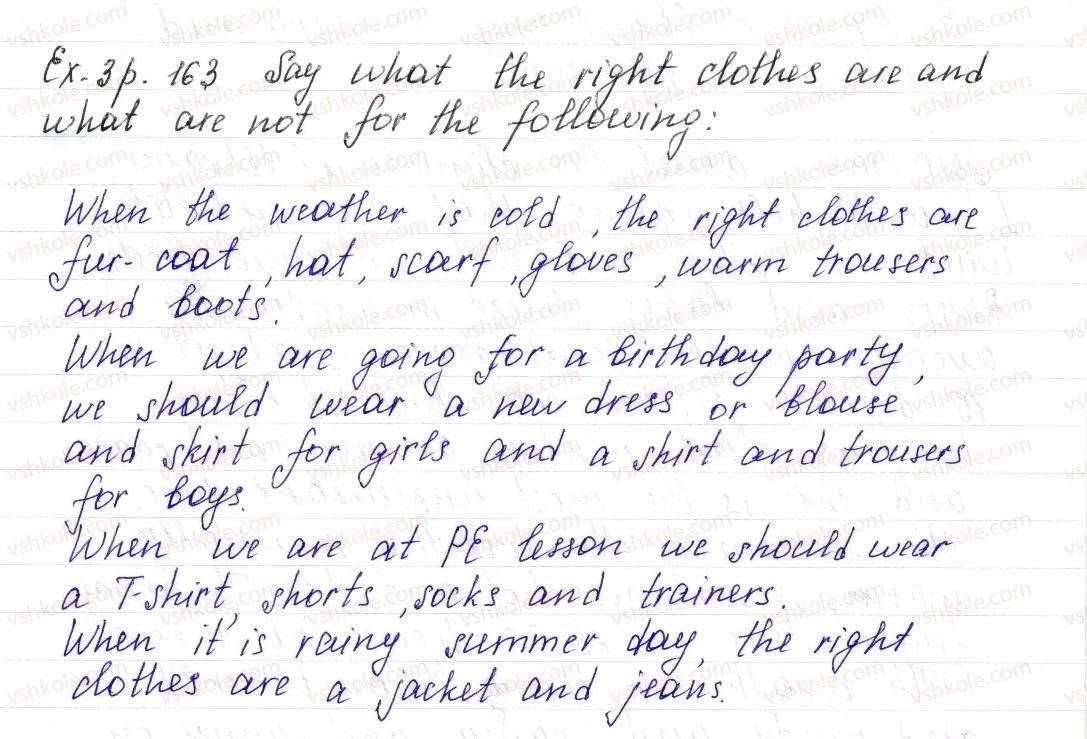 Ex. 3 p. 163 Say what the right clothes are and
what are not for the following:
When the weather is cold, the right clothes are
fur-coat, hat, scarf, gloves, warm trousers
and boots.
When we are going for a birthday party,
we should wear a new dress or blouse
and skirt for girls and a shirt and trousers
for boys.
When we are at PE lesson we should wear
a T-shirt, shorts, socks and trainers.
When it is rainy summer day, the right
clothes are a jacket and jeans.